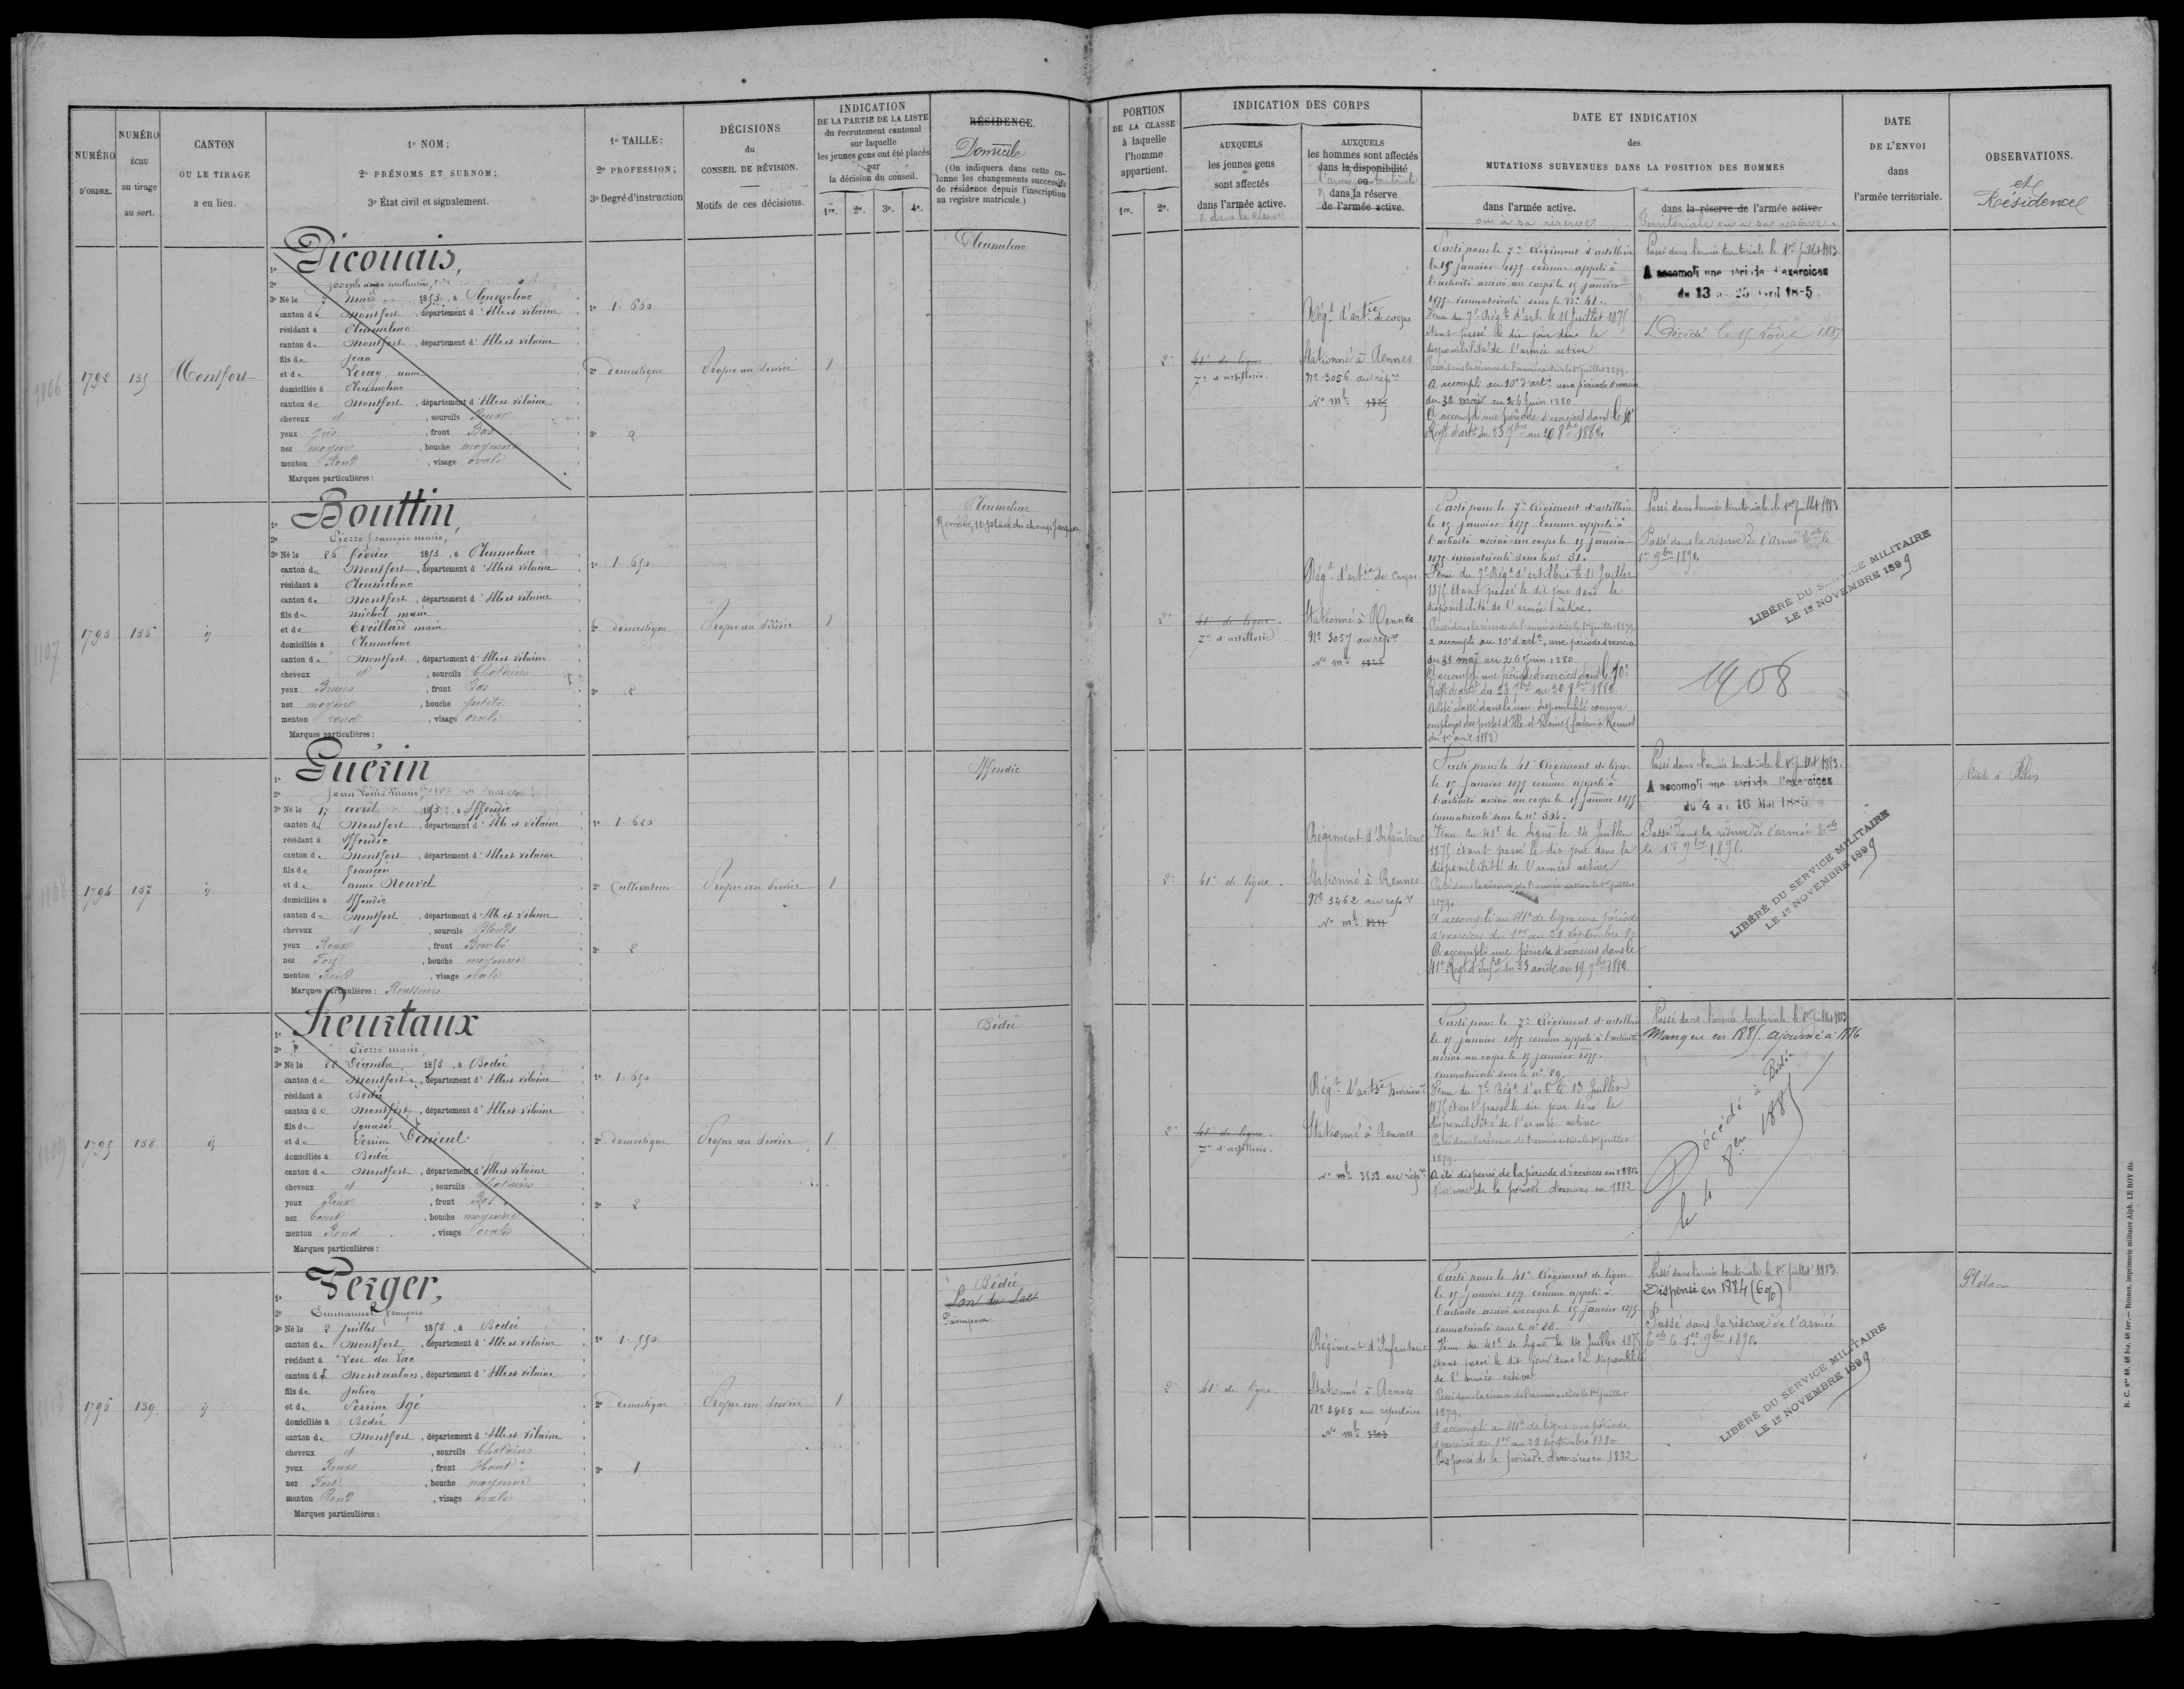 NUMÉRO
D'ORDRE.
NUMÉRO
ÉCHU
au tirage
au sort.
CANTON
OU LE TIRAGE
a eu lieu.
1º NOM;
2º PRÉNOMS ET SURNOM;
3º État civil et signalement.
1º TAILLE;
2º PROFESSION;
3º Degré d'instruction
DÉCISIONS
du
CONSEIL DE RÉVISION.
Motifs de ces décisions.
INDICATION
DE LA PARTIE DE LA LISTE
du recrutement cantonal
sur laquelle
les jeunes gens ont été placés
par
la décision du conseil.
1re. 2e. 3e. 4e.
RÉSIDENCE
Domicile
(On indiquera dans cette co-
lonne les changements successifs
de résidence depuis l'inscription
au registre matricule.)
PORTION
DE LA CLASSE
à laquelle
l'homme
appartient.
1re. 2e.
INDICATION DES CORPS
AUXQUELS
les jeunes gens
sont affectés
dans l'armée active.
AUXQUELS
les hommes sont affectés
dans la disponibilité
ou
dans la réserve
de l'armée active.
DATE ET INDICATION
des
MUTATIONS SURVENUES DANS LA POSITION DES HOMMES
dans l'armée active.
ou à sa réserve
dans la réserve de l'armée active.
territoriale ou à sa réserve
DATE
DE L'ENVOI
dans
l'armée territoriale.
OBSERVATIONS.
et
Résidence
1792
135
Montfort
1º Dicouais,
2º Joseph mathurin
3º Né le mai 1853, à Pleumeleuc
canton de Montfort, département d'Ille et Vilaine
résidant à Pleumeleuc
canton de Montfort, département d'Ille et Vilaine
fils de Jean
et de Leray anne
domiciliés à Pleumeleuc
canton de Montfort, département d'Ille et Vilaine
cheveux et, sourcils Roux
yeux gris, front Bas
nez moyen, bouche moyenne
menton Rond, visage ovale
Marques particulières:
1º 1.660
2º domestique
3º 2
Propre au service
1
Pleumeleuc
2e
41e de ligne
7e d'artillerie.
Régt d'artie de corps
Stationné à Rennes
Nº 3056 au réperre
Nº mle
Parti pour le 7e Régiment d'artillerie
le 15 janvier 1875 comme appelé à
l'activité arrivé au corps le 15 janvier
1875 immatriculé sous le Nº 41.
Venu du 7e Régt d'art. le 11 Juillet 1875
étant passé le dit jour dans la
disponibilité de l'armée active
Passé dans la réserve de l'armée active le 1er juillet 1879.
A accompli au 10e d'artie une période d'exercices
du 31 mai au 26 Juin 1880
A accompli une période d'exercices dans le 10e
Régt d'artie du 23 7bre au 20 8bre 1882.
Passé dans l'armée territoriale le 1er Juillet 1883.
A accompli une période d'exercices
du 13 au 25 Avril 1885
Décédé le 15 Août 1887
1793
136
ij
1º Bouttin,
2º Pierre françois marie,
3º Né le 26 février 1853, à Pleumeleuc
canton de Montfort, département d'Ille et Vilaine
résidant à Pleumeleuc
canton de Montfort, département d'Ille et Vilaine
fils de michel marie
et de Eveillard marie
domiciliés à Pleumeleuc
canton de Montfort, département d'Ille et Vilaine
cheveux et, sourcils Chatains
yeux Bruns, front Bas
nez moyen, bouche petite
menton rond, visage ovale
Marques particulières:
1º 1.650
2º domestique
3º 2
Propre au service
1
Pleumeleuc
Rennes, 11, place du champ Jacquet
2e
41e de ligne.
7e d'artillerie.
Régt d'artie de corps
Stationné à Rennes
Nº 3057 au réperre
Nº mle
Parti pour le 7e Régiment d'artillerie
le 15 janvier 1875 comme appelé à
l'activité arrivé au corps le 15 janvier
1875 immatriculé sous le nº 31.
Venu du 7e Régt d'artillerie le 11 Juillet
1875 étant passé le dit jour dans la
disponibilité de l'armée active.
Passé dans la réserve de l'armée active le 1er juillet 1879
a accompli au 10e d'artie, une période d'exercices
du 31 mai au 26 Juin 1880
A accompli une période d'exercices dans le 10e
Régt d'artie du 23 7bre au 20 8bre 1882.
A été classé dans la non-disponibilité comme
employé des postes d'Ille-et-Vilaine (facteur à Rennes)
du 1er avril 1882
Passé dans l'armée territoriale le 1er juillet 1883.
Passé dans la réserve de l'armée tale le
1er 9bre 1890.
1908
LIBÉRÉ DU SERVICE MILITAIRE
LE 1er NOVEMBRE 1899
1794
137
ij
1º Guérin
2º Jean Louis marie
3º Né le 17 avril 1853, à Iffendic
canton de Montfort, département d'Ille et Vilaine
résidant à Iffendic
canton de Montfort, département d'Ille et Vilaine
fils de françois
et de anne Nouvel
domiciliés à Iffendic
canton de Montfort, département d'Ille et Vilaine
cheveux et, sourcils Blonds
yeux Roux, front Bombé
nez Fort, bouche moyenne
menton Rond, visage ovale
Marques particulières: Rousseurs
1º 1.680
2º Cultivateur
3º 2
Propre au service
1
Iffendic
2e
41e de ligne.
Régiment d'Infanterie
Stationné à Rennes
Nº 3462 au réperre
Nº mle
Parti pour le 41e Régiment de ligne
le 15 janvier 1875 comme appelé à
l'activité arrivé au corps le 15 janvier 1875
immatriculé sous le nº 304.
Venu du 41e de ligne le 14 Juillet
1875 étant passé le dit jour dans la
disponibilité de l'armée active
Passé dans la réserve de l'armée active le 1er juillet
1879.
A accompli au 41e de ligne une période
d'exercices du 1er au 28 septembre 80
A accompli une période d'exercices dans le
41e Régt d'Infie du 23 août au 19 7bre 1882.
Passé dans l'armée territoriale le 1er Juillet 1882.
A accompli une période d'exercices
du 4 au 16 Mai 1885
Passé dans la réserve de l'armée tale
le 1er 9bre 1890.
LIBÉRÉ DU SERVICE MILITAIRE
LE 1er NOVEMBRE 1899
Réside à Plélan
1795
138
ij
1º Heurtaux
2º Pierre marie
3º Né le 22 Décembre 1853, à Bedée
canton de Montfort, département d'Ille et Vilaine
résidant à Bedée
canton de Montfort, département d'Ille et Vilaine
fils de
et de Perrine
domiciliés à Bedée
canton de Montfort, département d'Ille et Vilaine
cheveux et, sourcils Chatains
yeux Roux, front Bas
nez Court, bouche moyenne
menton Rond, visage ovale
Marques particulières:
1º 1.650
2º domestique
3º 2
Propre au service
1
Bédée
2e
41e de ligne.
7e d'artillerie.
Régt d'artie
Stationné à Rennes
Nº mle 3853 au réperre
Parti pour le 7e Régiment d'artillerie
le 15 janvier 1875 comme appelé à l'activité
arrivé au corps le 15 janvier 1875.
immatriculé sous le nº 29.
Venu du 7e Régt d'art. le 13 Juillet
1875 étant passé le dit jour dans la
disponibilité de l'armée active
Passé dans la réserve de l'armée active le 1er juillet
1879.
A été dispensé de la période d'exercices en 1880
Dispensé de la période d'exercices en 1882
Passé dans l'armée territoriale le 1er juillet 1883
Manqua en 1885. ajourné à 1886
Décédé à Bédée
le 4 1885
1796
139
ij
1º Perger,
2º Emmanuel françois
3º Né le 2 juillet 1853, à Bedée
canton de Montfort, département d'Ille et Vilaine
résidant à Lou du Lac
canton de Montauban, département d'Ille et Vilaine
fils de Julien
et de Perrine Sgé
domiciliés à Bedée
canton de Montfort, département d'Ille et Vilaine
cheveux et, sourcils Chatains
yeux Roux, front Haut
nez Fort, bouche moyenne
menton Rond, visage ovale
Marques particulières:
1º 1.550
2º domestique
3º 1
Propre au service
1
Bédée
Lou du Lac
Paimpont
2e
41e de ligne
Régiment d'Infanterie
Stationné à Rennes
Nº 3455 au répertoire
Nº mle
Parti pour le 41e Régiment de ligne
le 15 janvier 1875 comme appelé à
l'activité arrivé au corps le 15 janvier 1875
immatriculé sous le nº 88.
Venu du 41e de ligne le 14 Juillet 1875
étant passé le dit jour dans la disponibilité
de l'armée active
Passé dans la réserve de l'armée active le 1er juillet
1879.
A accompli au 41e de ligne une période
d'exercices du 1er au 28 septembre 1880
Dispensé de la période d'exercices en 1882
Passé dans l'armée territoriale le 1er juillet 1883.
Dispensé en 1884 (6%)
Passé dans la réserve de l'armée
tale le 1er 9bre 1890.
LIBÉRÉ DU SERVICE MILITAIRE
LE 1er NOVEMBRE 1899
Plélan
1107
1108
1109